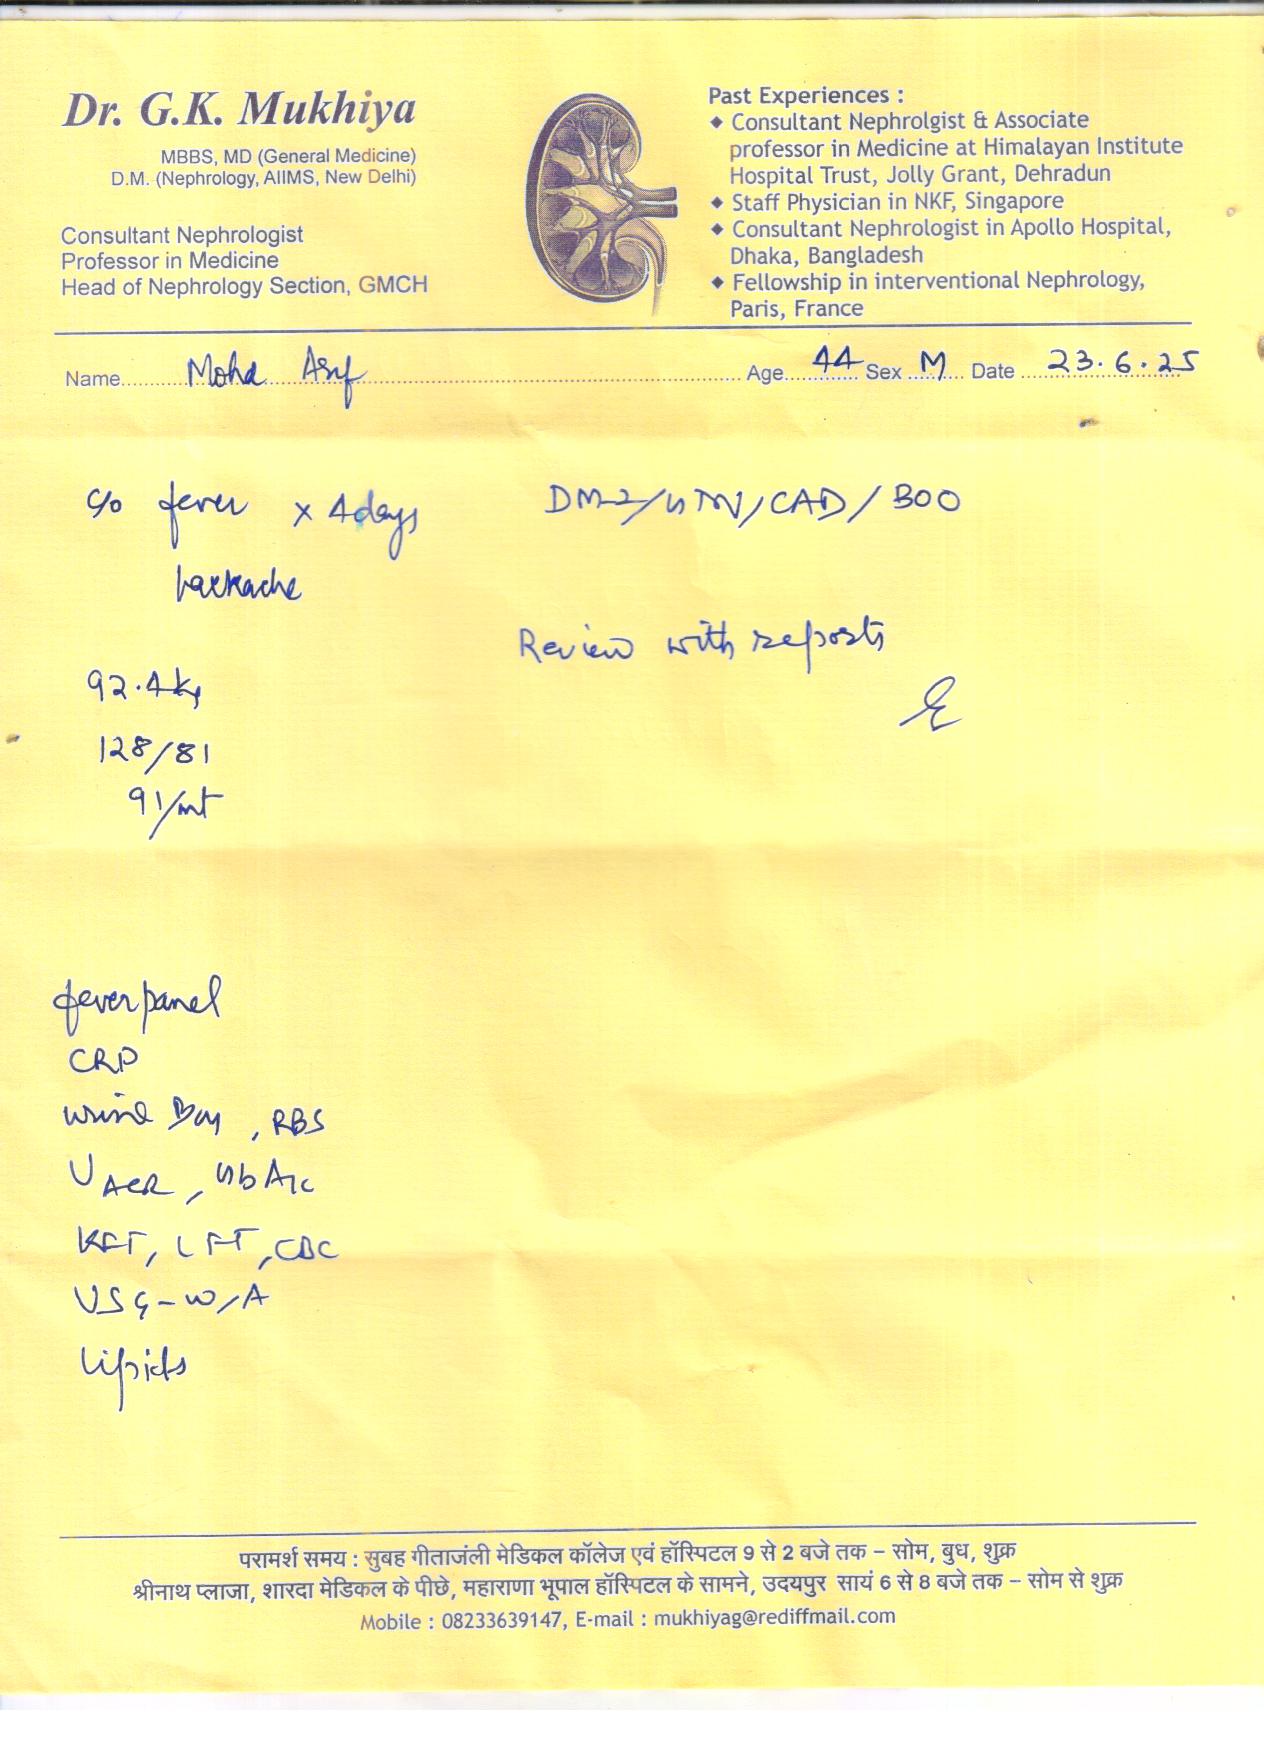 Dr. G.K. Mukhiya
MBBS, MD (General Medicine)
D.M. (Nephrology, AIIMS, New Delhi)
Consultant Nephrologist
Professor in Medicine
Head of Nephrology Section, GMCH
Past Experiences :
◆ Consultant Nephrolgist & Associate
professor in Medicine at Himalayan Institute
Hospital Trust, Jolly Grant, Dehradun
◆ Staff Physician in NKF, Singapore
◆ Consultant Nephrologist in Apollo Hospital,
Dhaka, Bangladesh
◆ Fellowship in interventional Nephrology,
Paris, France
Name..........Mohd Asif.......... Age....44.... Sex ..M.. Date ....23.6.25....
c/o fever x 4 days
backache
DM2/HTN/CAD/BOO
Review with reports
92.4 kg
128/81
91/mt
fever panel
CRP
urine , RBS
UACR, HbA1c
KFT, LFT, CBC
USG-W/A
Lipids
परामर्श समय : सुबह गीताजंली मेडिकल कॉलेज एवं हॉस्पिटल 9 से 2 बजे तक – सोम, बुध, शुक्र
श्रीनाथ प्लाजा, शारदा मेडिकल के पीछे, महाराणा भूपाल हॉस्पिटल के सामने, उदयपुर सायं 6 से 8 बजे तक – सोम से शुक्र
Mobile : 08233639147, E-mail : mukhiyag@rediffmail.com